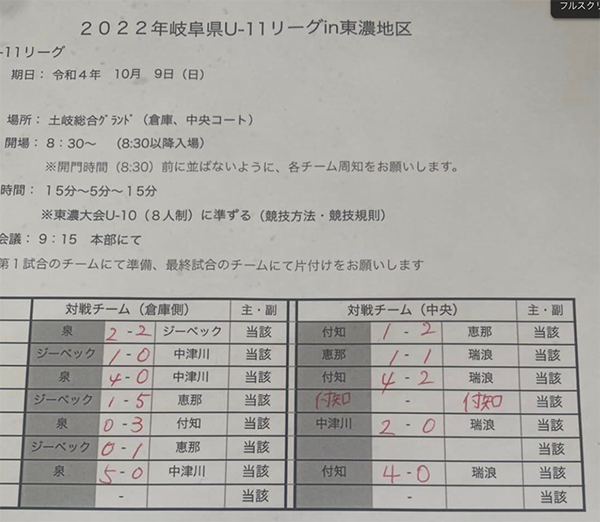 フルスクリ
2022年岐阜県U-11リーグin東濃地区
-11リーグ
期日： 令和4年 10月 9日（日）
場所： 土岐総合ｸﾞﾗﾝﾄﾞ（倉庫、中央コート）
開場： 8：30～ （8:30以降入場）
※開門時間（8:30）前に並ばないように、各チーム周知をお願いします。
時間： 15分～5分～15分
※東濃大会U-10（8人制）に準ずる（競技方法・競技規則）
会議： 9：15 本部にて
第1試合のチームにて準備、最終試合のチームにて片付けをお願いします
対戦チーム（倉庫側） 主・副 対戦チーム（中央） 主・副
泉 2-2 ジーベック 当該 付知 1-2 恵那 当該
ジーベック 1-0 中津川 当該 恵那 1-1 瑞浪 当該
泉 4-0 中津川 当該 付知 4-2 瑞浪 当該
ジーベック 1-5 恵那 当該 付知 - 付知 当該
泉 0-3 付知 当該 中津川 2-0 瑞浪 当該
ジーベック 0-1 恵那 当該 当該
泉 5-0 中津川 当該 付知 4-0 瑞浪 当該
- 当該 - 当該